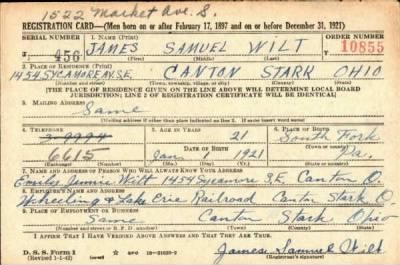 1522 Market Ave. S.
REGISTRATION CARD—(Men born on or after February 17, 1897 and on or before December 31, 1921)
SERIAL NUMBER 1. NAME (Print) ORDER NUMBER
456 JAMES SAMUEL WILT 10855
(First) (Middle) (Last)
2. PLACE OF RESIDENCE (Print)
1454 SYCAMORE AV. S.E. CANTON STARK OHIO
(Number and street) (Town, township, village, or city) (County) (State)
[THE PLACE OF RESIDENCE GIVEN ON THE LINE ABOVE WILL DETERMINE LOCAL BOARD
JURISDICTION; LINE 2 OF REGISTRATION CERTIFICATE WILL BE IDENTICAL]
3. MAILING ADDRESS
Same
[Mailing address if other than place indicated on line 2. If same insert word same]
4. TELEPHONE 5. AGE IN YEARS 6. PLACE OF BIRTH
21 South Fork
DATE OF BIRTH
6615 Jan. 1 1921 Pa.
7. NAME AND ADDRESS OF PERSON WHO WILL ALWAYS KNOW YOUR ADDRESS
Emily Jennie Wilt 1454 Sycamore S.E. Canton O.
8. EMPLOYER'S NAME AND ADDRESS
Wheeling & Lake Erie Railroad Canton Stark O.
9. PLACE OF EMPLOYMENT OR BUSINESS
Same Canton Stark Ohio
(Number and street or R. F. D. number) (Town) (County) (State)
I AFFIRM THAT I HAVE VERIFIED ABOVE ANSWERS AND THAT THEY ARE TRUE.
D. S. S. Form 1
(Revised 1-1-42) (over) James Samuel Wilt